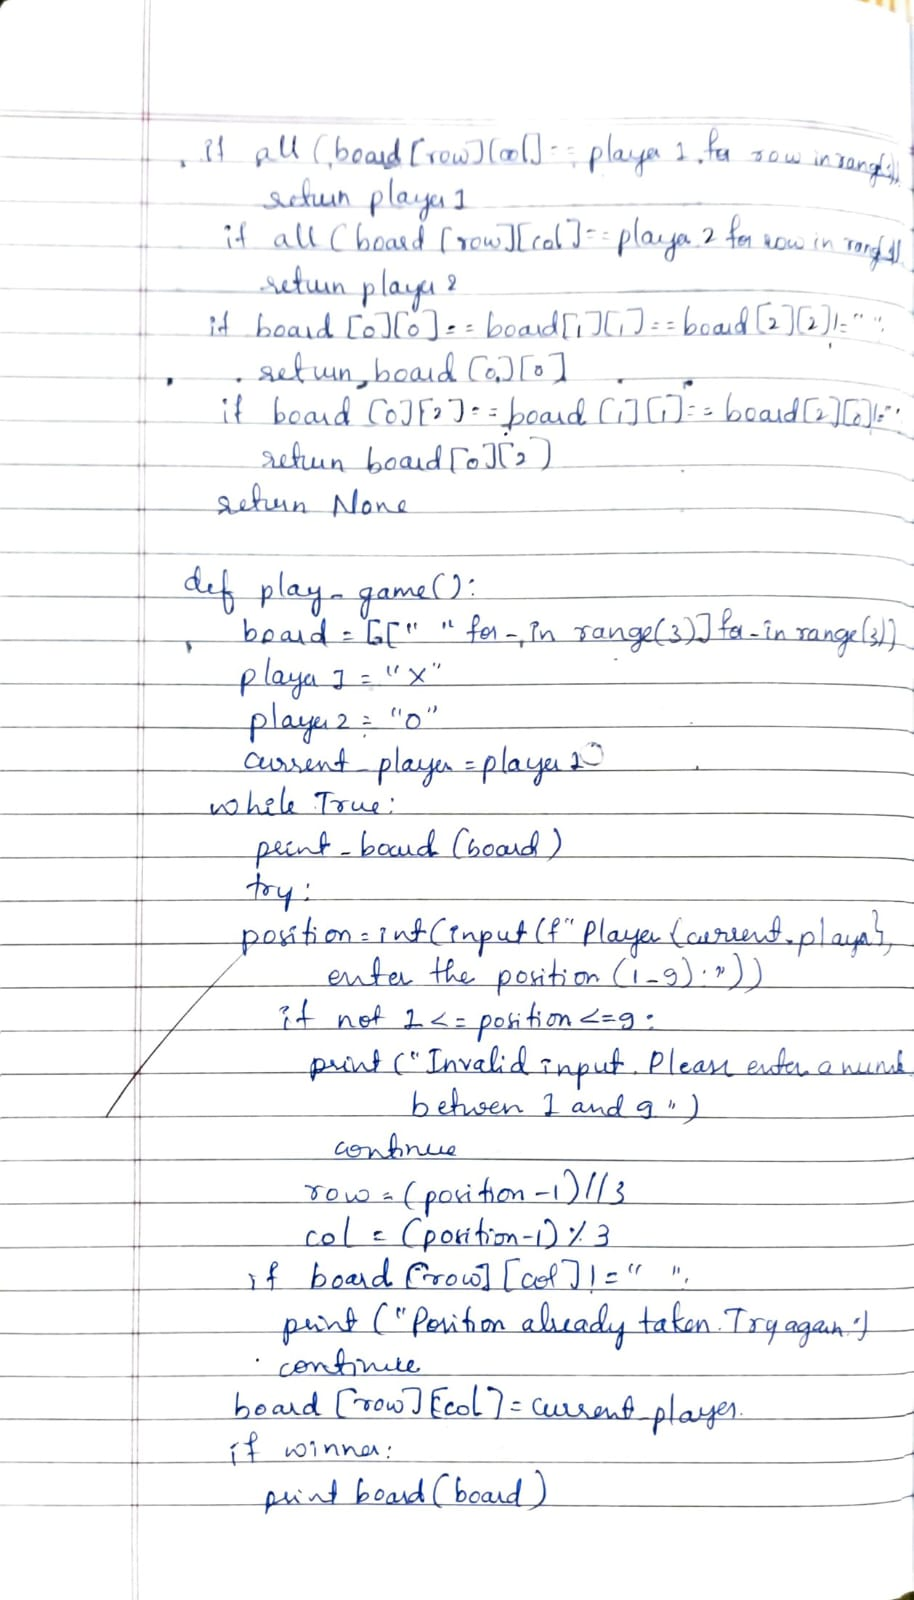 if all (board[row][col] == player 1 for row in range(3)
return player 1
if all (board [row][col] == player 2 for row in range(3)
return player 2
if board [0][0] == board[1][1] == board[2][2] != " ":
return board [0][0]
if board [0][2] == board [1][1] == board[2][0] != "
return board [0][2]
return None
def play_game():
board = [[" " for _ in range(3)] for _ in range(3)]
player 1 = "X"
player 2 = "O"
current_player = player 1
while True:
print_board (board)
try:
position = int(input(f" Player {current_player},
enter the position (1-9): "))
if not 1 <= position <= 9:
print (" Invalid input. Please enter a numb
between 1 and 9 ")
continue
row = (position -1) // 3
col = (position-1) % 3
if board [row] [col] != " ":
print (" Position already taken. Try again.")
continue
board [row] [col] = current_player.
if winner:
print board (board)